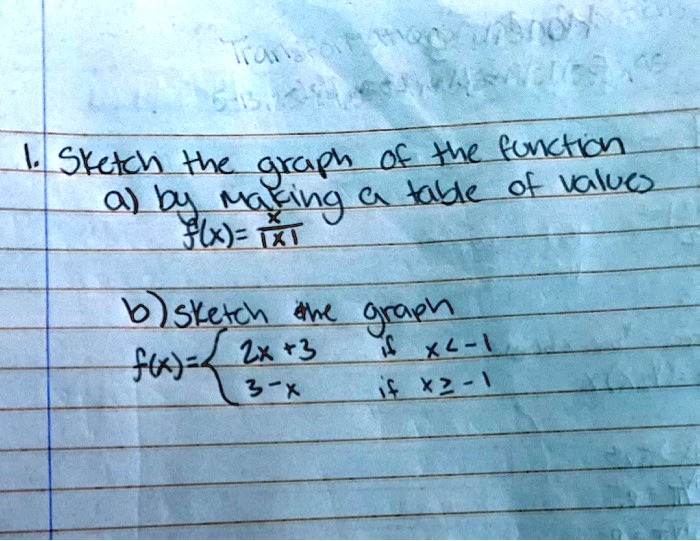 1. Sketch the graph of the function
a) by making a table of values
f(x)= x/|x|
b) sketch the graph
f(x)={ 2x +3 if x<-1
3-x if x≥-1